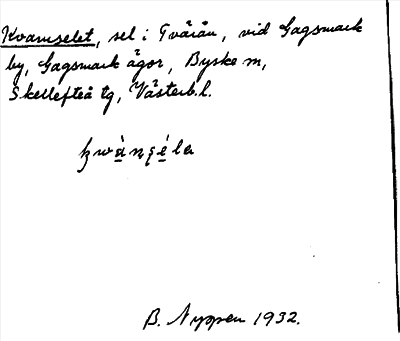 Kvarnselet, sel i Tvärån, vid Gagsmark
by, Gagsmark ägor, Byske m,
Skellefteå tg, Västerb.l.
B. Nyppen 1932.